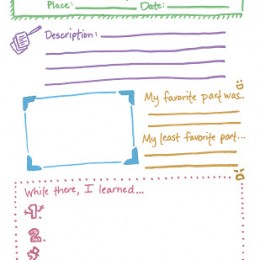 Place: Date:
Description:
My favorite part was..
My least favorite part...
While there, I learned...
1.
2.
3.